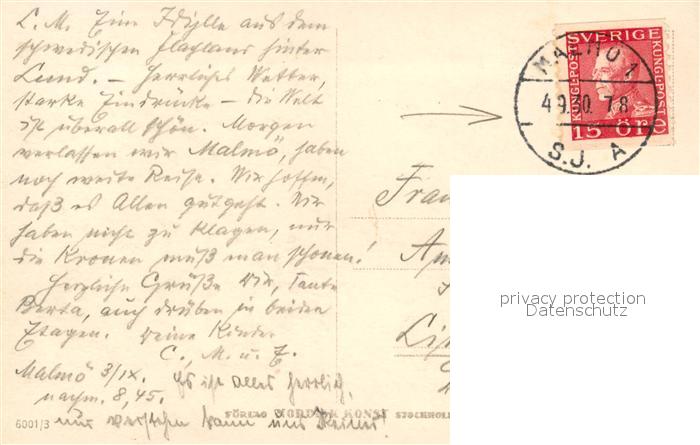 L. M. Eine Idylle aus dem
schwedischen Flachland hinter
Lund. – Herrliches Wetter,
starke Eindrücke – die Welt
ist überall schön. Morgen
verlassen wir Malmö, haben
noch weite Reise. Wir hoffen,
daß es Allen gutgeht. Wir
haben nicht zu klagen, nur
die Kronen muß man schonen!
Herzliche Grüße Dir, Tante
Berta, auch drüben in beiden
Etagen. Deine Kinder
C., M. u. E.
Malmö 3/IX.
nachm. 8,45.
Es ist alles herrlich,
nur verstehn kann uns Keiner!
6001/3
FÖRLAG NORDISK KONST STOCKHOL
SVERIGE
KUNGL·POST
KUNGL·POST
15 ÖRE
MALMÖ 1
4 9.30. 78
S.J. A
Frau
Am
Li
privacy protection
Datenschutz